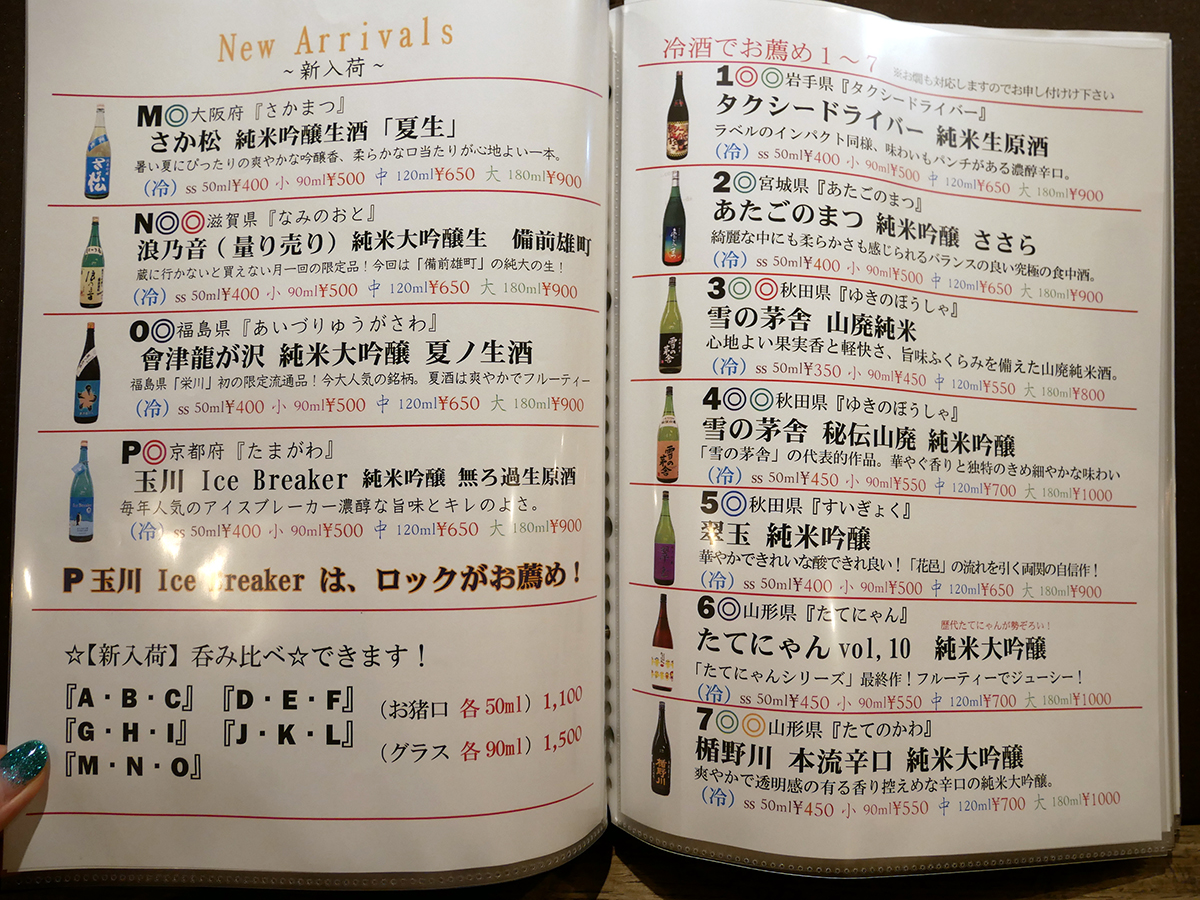 New Arrivals
~新入荷~
M◎大阪府『さかまつ』
さか松 純米吟醸生酒「夏生」
暑い夏にぴったりの爽やかな吟醸香、柔らかな口当たりが心地よい一本。
(冷) ss 50ml¥400 小 90ml¥500 中 120ml¥650 大 180ml¥900
N◎◎滋賀県『なみのおと』
浪乃音(量り売り)純米大吟醸生 備前雄町
蔵に行かないと買えない月一回の限定品!今回は「備前雄町」の純大の生!
(冷) ss 50ml¥400 小 90ml¥500 中 120ml¥650 大 180ml¥900
O◎福島県『あいづりゅうがさわ』
會津龍が沢 純米大吟醸 夏ノ生酒
福島県「栄川」初の限定流通品!今大人気の銘柄。夏酒は爽やかでフルーティー
(冷) ss 50ml¥400 小 90ml¥500 中 120ml¥650 大 180ml¥900
P◎京都府『たまがわ』
玉川 Ice Breaker 純米吟醸 無ろ過生原酒
毎年人気のアイスブレーカー濃醇な旨味とキレのよさ。
(冷) ss 50ml¥400 小 90ml¥500 中 120ml¥650 大 180ml¥900
P 玉川 Ice Breaker は、ロックがお薦め!
☆【新入荷】呑み比べ☆できます!
『A・B・C』 『D・E・F』
『G・H・I』 『J・K・L』
『M・N・O』
(お猪口 各50ml) 1,100
(グラス 各90ml) 1,500
冷酒でお薦め1~7 ※お燗も対応しますのでお申し付け下さい
1◎◎岩手県『タクシードライバー』
タクシードライバー 純米生原酒
ラベルのインパクト同様、味わいもパンチがある濃醇辛口。
(冷) ss 50ml¥400 小 90ml¥500 中 120ml¥650 大 180ml¥900
2◎宮城県『あたごのまつ』
あたごのまつ 純米吟醸 ささら
綺麗な中にも柔らかさも感じられるバランスの良い究極の食中酒。
(冷) ss 50ml¥400 小 90ml¥500 中 120ml¥650 大 180ml¥900
3◎◎秋田県『ゆきのぼうしゃ』
雪の茅舎 山廃純米
心地よい果実香と軽快さ、旨味ふくらみを備えた山廃純米酒。
(冷) ss 50ml¥350 小 90ml¥450 中 120ml¥550 大 180ml¥800
4◎◎秋田県『ゆきのぼうしゃ』
雪の茅舎 秘伝山廃 純米吟醸
「雪の茅舎」の代表的作品。華やぐ香りと独特のきめ細やかな味わい
(冷) ss 50ml¥450 小 90ml¥550 中 120ml¥700 大 180ml¥1000
5◎秋田県『すいぎょく』
翠玉 純米吟醸
華やかできれいな酸できれ良い!「花邑」の流れを引く両関の自信作!
(冷) ss 50ml¥400 小 90ml¥500 中 120ml¥650 大 180ml¥900
6◎山形県『たてにゃん』
歴代たてにゃんが勢ぞろい!
たてにゃん vol,10 純米大吟醸
「たてにゃんシリーズ」最終作!フルーティーでジューシー!
(冷) ss 50ml¥450 小 90ml¥550 中 120ml¥700 大 180ml¥1000
7◎◎山形県『たてのかわ』
楯野川 本流辛口 純米大吟醸
爽やかで透明感の有る香り控えめな辛口の純米大吟醸。
(冷) ss 50ml¥450 小 90ml¥550 中 120ml¥700 大 180ml¥1000